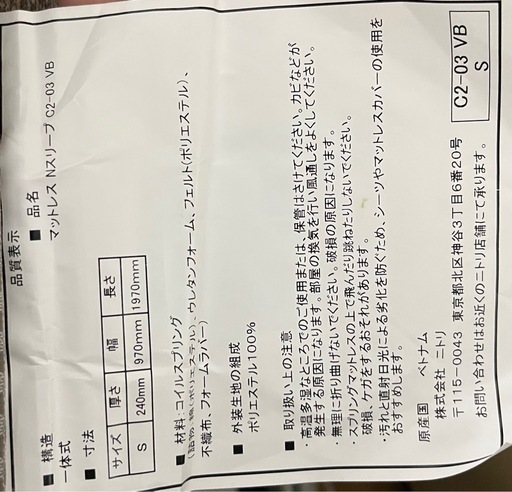 品質表示
■ 構造
一体式
■ 品名
マットレス Nスリープ C2-03 VB
■ 寸法
サイズ 厚さ 幅 長さ
S 240mm 970mm 1970mm
■ 材料:コイルスプリング
(詰物:綿(ポリエステル)、ウレタンフォーム、フェルト(ポリエステル)、
不織布、フォームラバー)
■ 外装生地の組成
ポリエステル100%
■ 取り扱い上の注意
・高温多湿なところでのご使用または、保管はさけてください。カビなどが
発生する原因になります。部屋の換気を行い風通しをよくしてください。
・無理に折り曲げないでください。破損の原因になります。
・スプリングマットレスの上で飛んだり跳ねたりしないでください。
破損、ケガをするおそれがあります。
・汚れと直射日光による劣化を防ぐため、シーツやマットレスカバーの使用を
おすすめします。
原産国 ベトナム
株式会社 ニトリ
〒115-0043 東京都北区神谷3丁目6番20号
お問い合わせはお近くのニトリ店舗にて承ります。
C2-03 VB
S